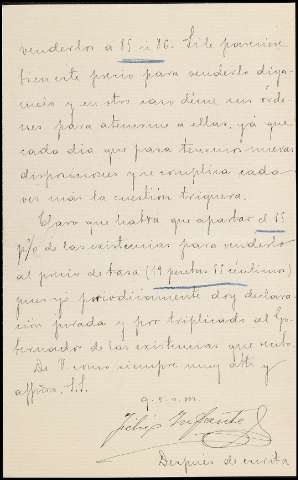 venderlos á 85 u 86. Si le pareciese
bien este precio para venderlo digo-
melo y en otro caso déme sus órde-
nes para atenerme á ellas, ya que
cada dia que pasa tenemos nuevas
disposiciones que complica cada
vez mas la cuestión triguera.
Claro que habrá que apartar el 15
p% de las existencias para venderlo
al precio de tasa (19 pesetas 55 céntimos)
pues yo periodicamente doy declara-
ción jurada y por triplicado al Go-
bernador de las existencias que resto.
De V. como siempre muy atto y
affmo. S.S.
q. e. s. m.
Felix Infante
Despues de escrita